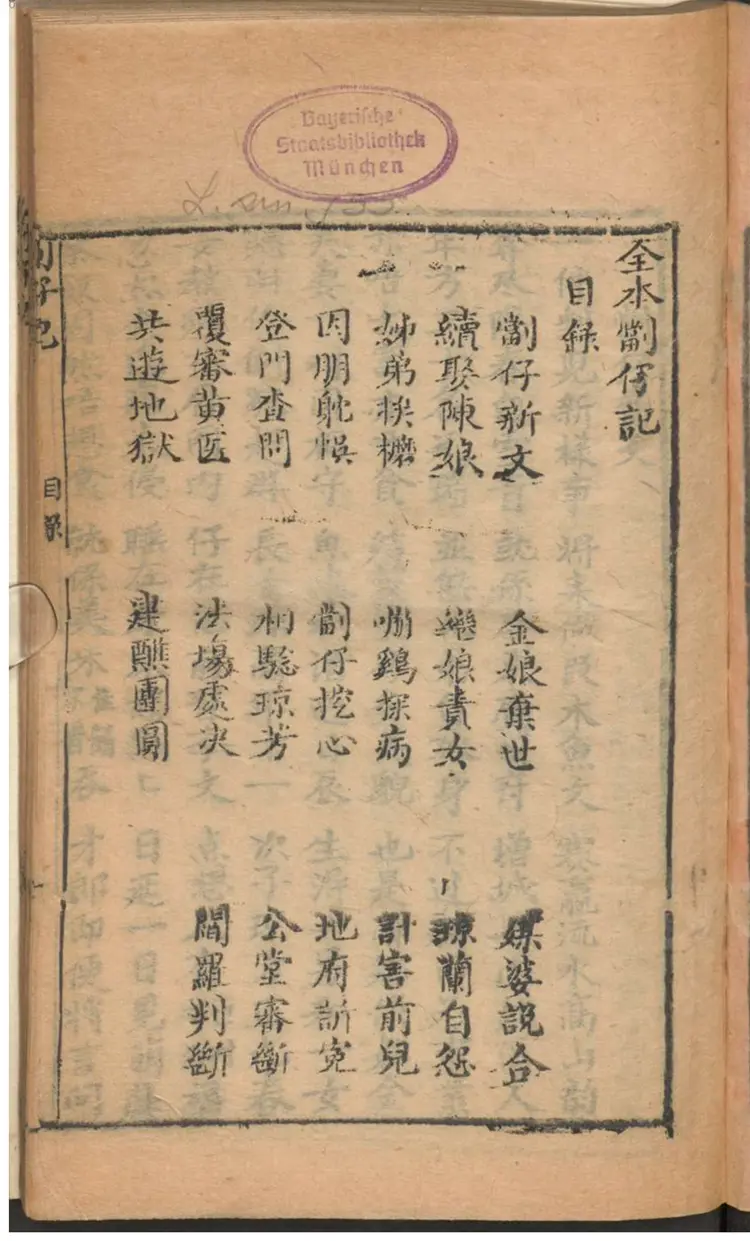 Bayerische
Staatsbibliothek
München
L. sin
全本劏仔記
目錄
劏仔新文 金娘棄世 媒婆說合
續娶陳娘 繼娘責女 瓊蘭自怨
姊弟挨櫓 嘣鷄探病 計害前兒
因朋躭悞 劏仔挖心 地府訴寃
登門查問 相騐琼芳 公堂審斷
覆審黄医 法塲處决 閻羅判斷
共遊地獄 建醮團圓
目錄